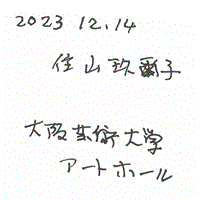 2023 12.14
住山玖爾子
大阪芸術大学
アートホール